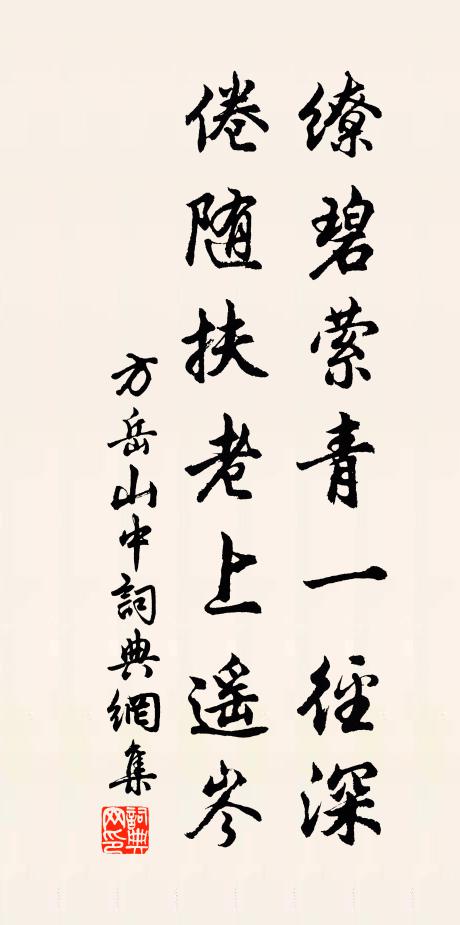 缭碧萦青一径深
倦随扶老上遥岑
方岳山中詞典網集
詞典网印